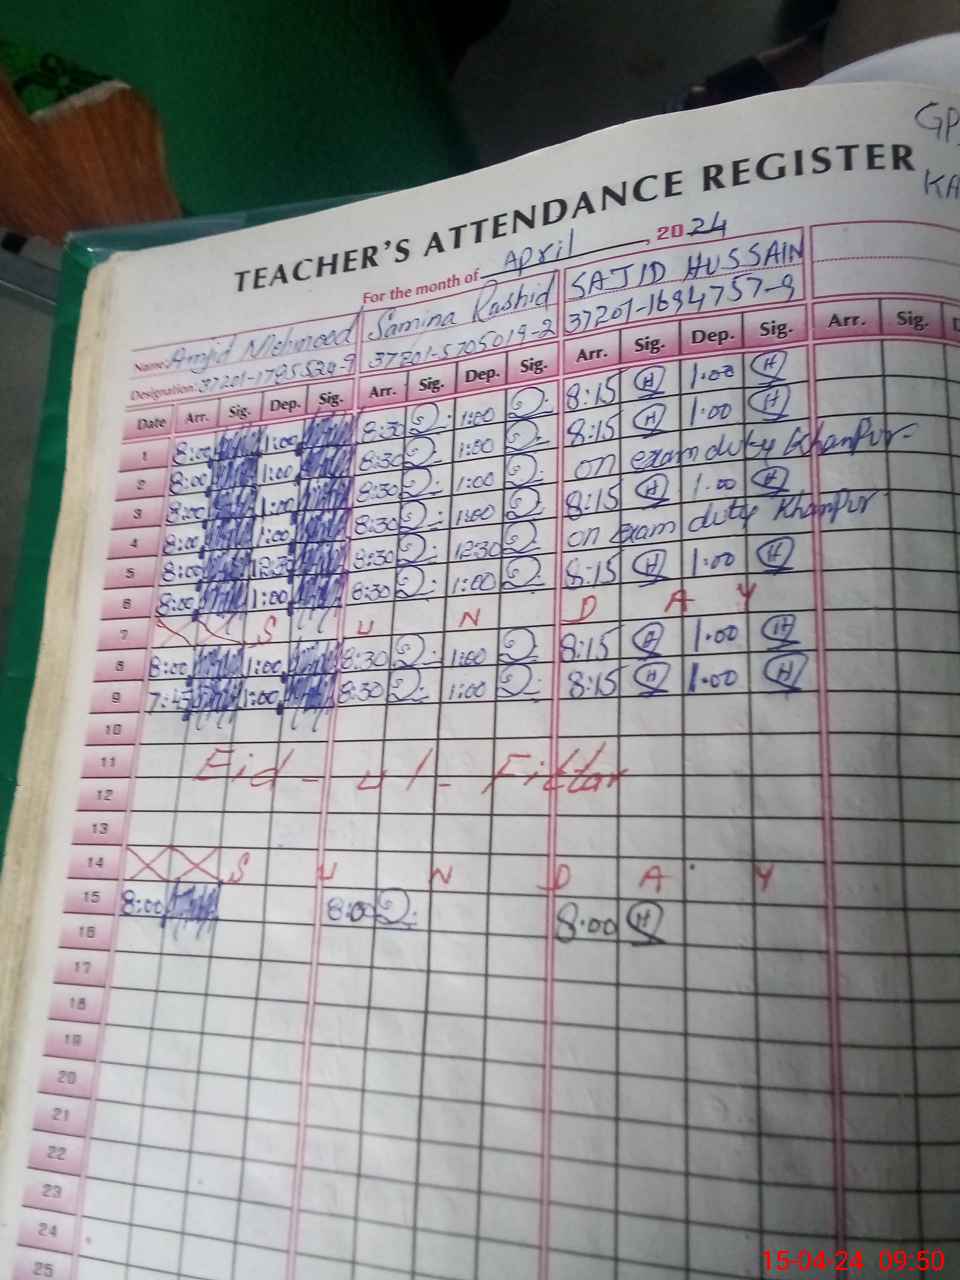 GP
KA
TEACHER'S ATTENDANCE REGISTER
For the month of April, 2024
Name: Amjid Mehmood Samina Rashid SAJID HUSSAIN
Designation: 37201-1785529-9 37201-5705019-2 37201-1694757-9
Date Arr. Sig. Dep. Sig. Arr. Sig. Dep. Sig. Arr. Sig. Dep. Sig. Arr. Sig. D
1 8:00 1:00 8:30 1:00 8:15 H 1:00 H
2 8:00 1:00 8:30 1:00 8:15 H 1:00 H
3 8:00 1:00 8:30 1:00 on exam duty Khanpur
4 8:00 1:00 8:30 1:00 8:15 H 1:00 H
5 8:00 12:30 8:30 12:30 on exam duty Khanpur
6 8:00 1:00 8:30 1:00 8:15 H 1:00 H
7 S U N D A Y
8 8:00 1:00 8:30 1:00 8:15 H 1:00 H
9 7:45 1:00 8:30 1:00 8:15 H 1:00 H
10
11 Eid-ul-Fittar
12
13
14 S U N D A Y
15 8:00 8:00 8:00 H
16
17
18
19
20
21
22
23
24
25
15-04-24 09:50